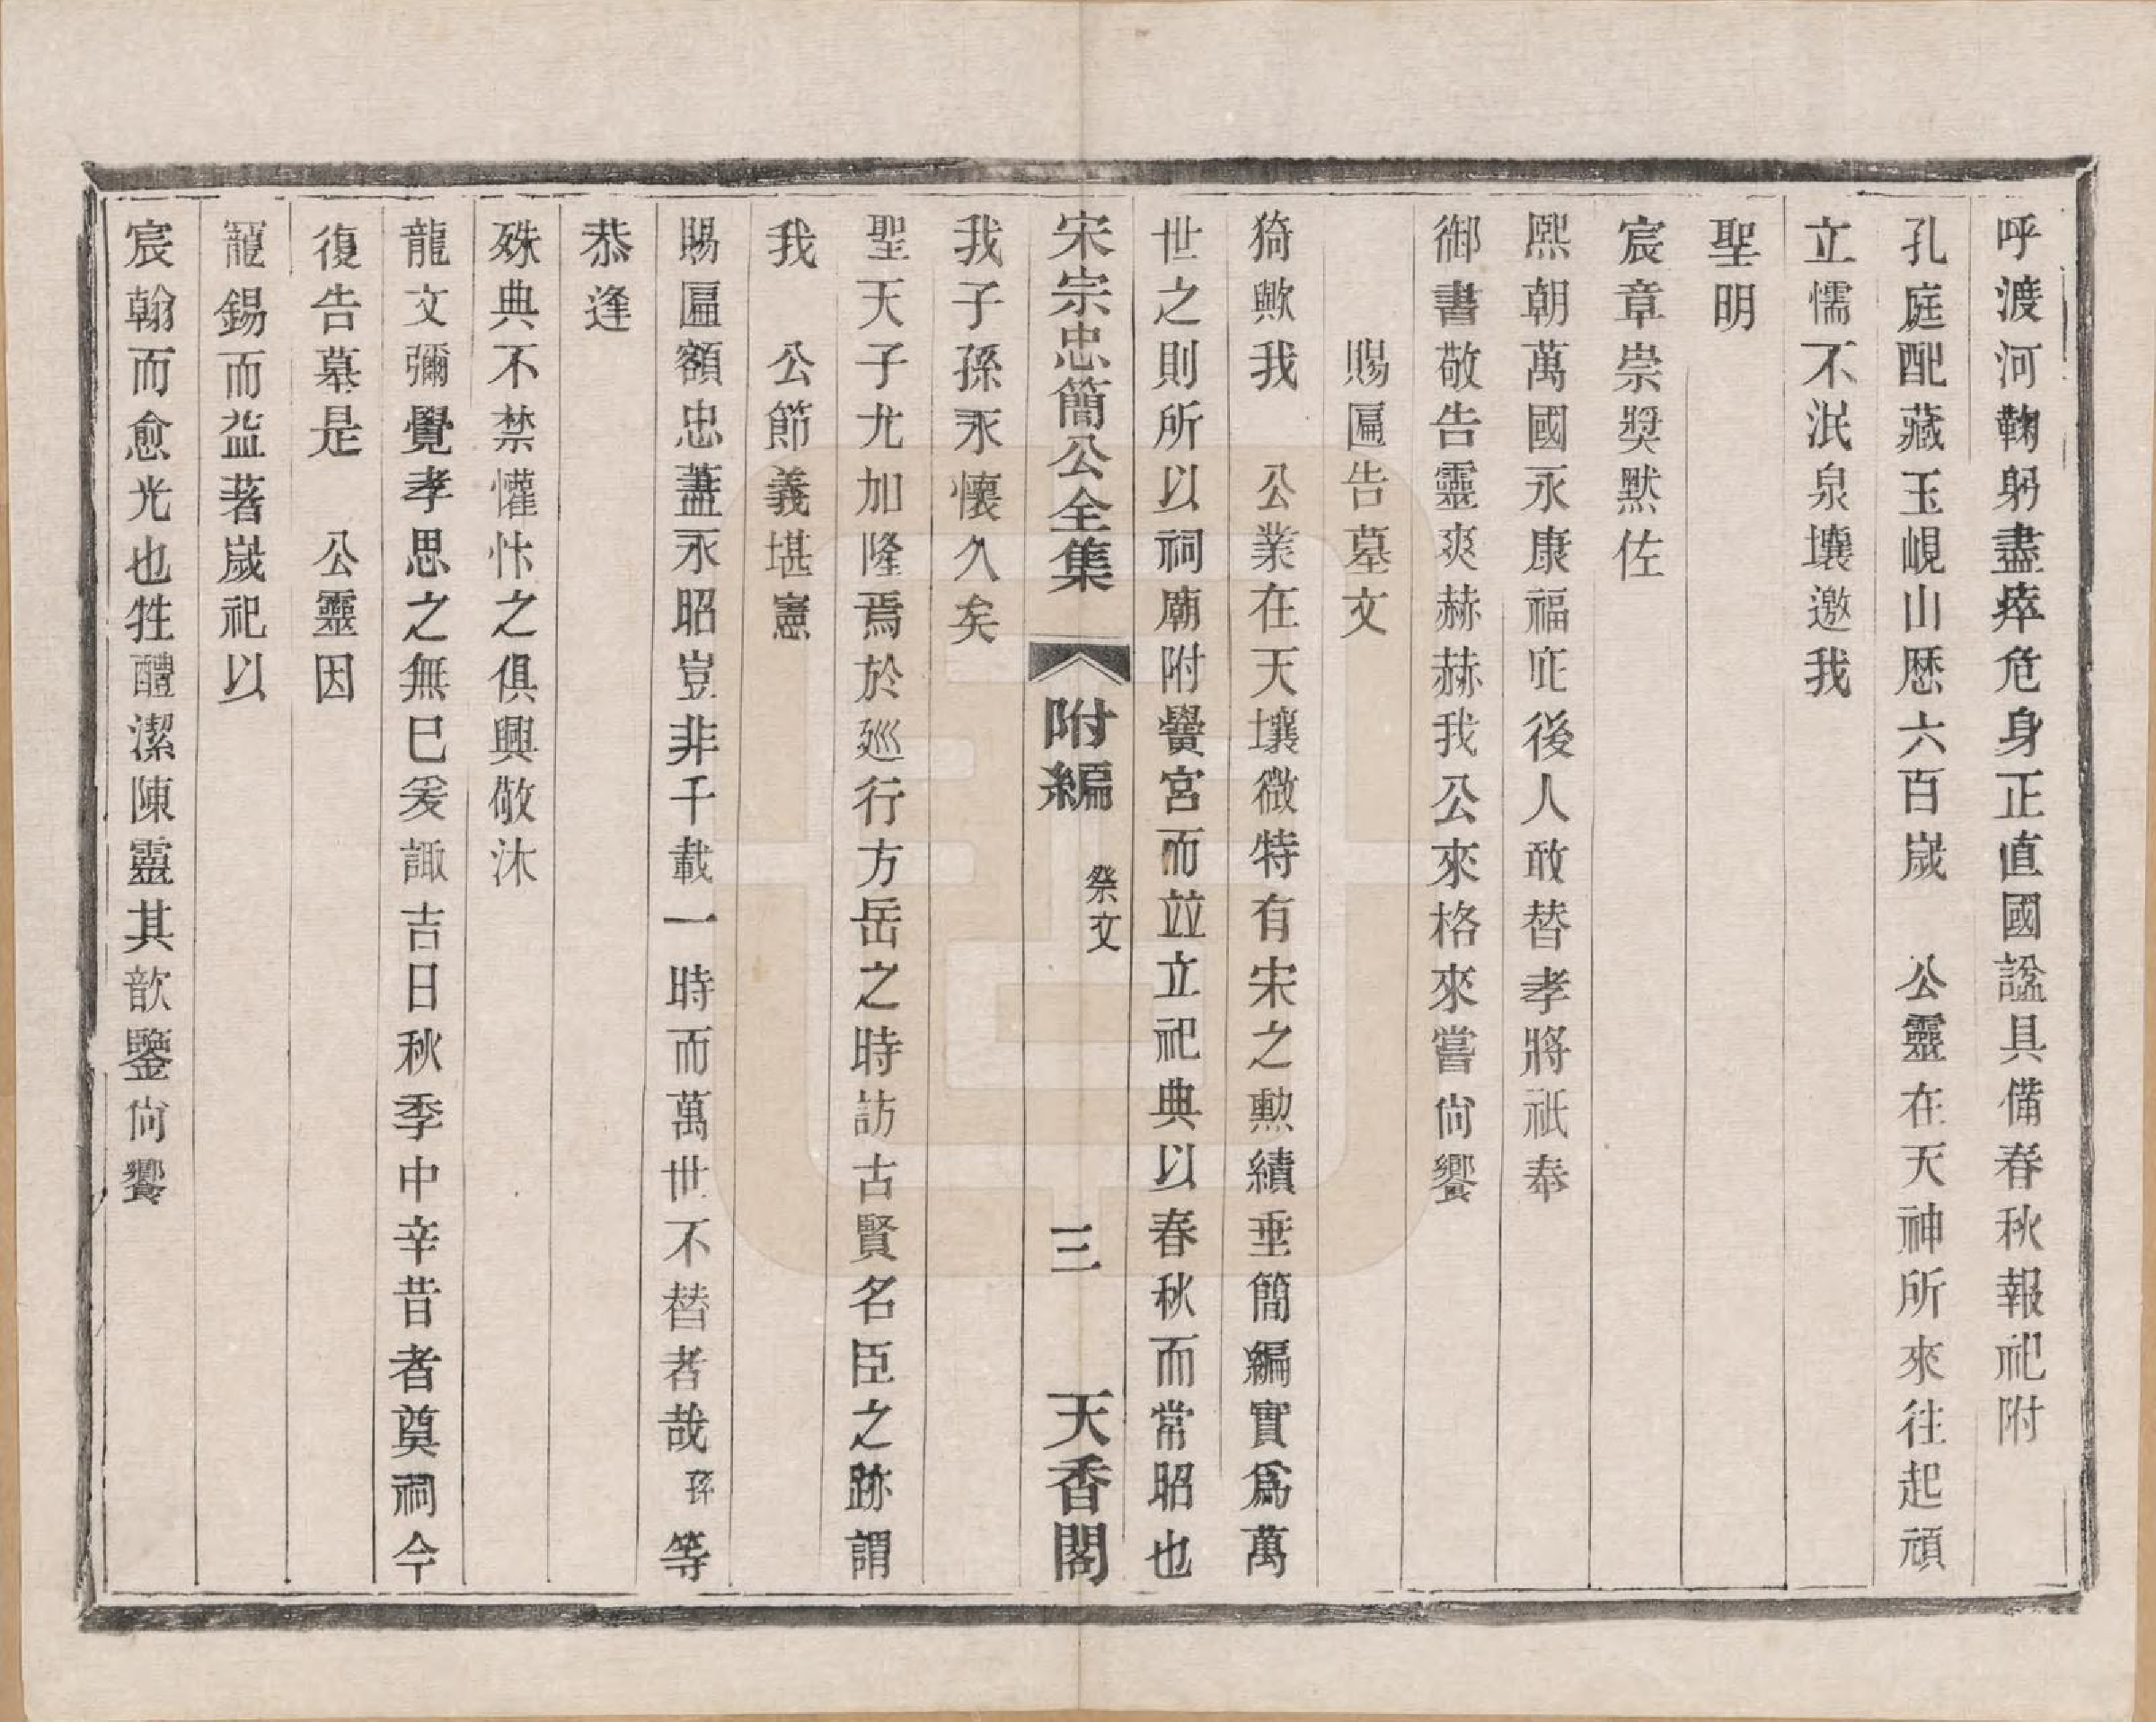 呼渡河鞠躬盡瘁危身正直國諡具備春秋報祀附
孔庭配藏玉峴山歷六百歲　公靈在天神所來往起頑
立懦不泯泉壤邀我
聖明
宸章崇奬默佐
熙朝萬國永康福庇後人敢替孝將祇奉
御書敬告靈爽赫赫我公來格來嘗尙饗
賜匾告墓文
猗歟我　公業在天壤微特有宋之勲績垂簡編實爲萬
世之則所以祠廟附黌宮而竝立祀典以春秋而常昭也
宋宗忠簡公全集　附編　祭文　三　天香閣
我子孫永懷久矣
聖天子尤加隆焉於廵行方岳之時訪古賢名臣之跡謂
我　公節義堪憲
賜匾額忠藎永昭豈非千載一時而萬世不替者哉孫等
恭逢
殊典不禁懽忭之俱興敬沐
龍文彌覺孝思之無巳爰諏吉日秋季中辛昔者奠祠今
復告墓是　公靈因
寵錫而益著歲祀以
宸翰而愈光也牲醴潔陳靈其歆鑒尙饗